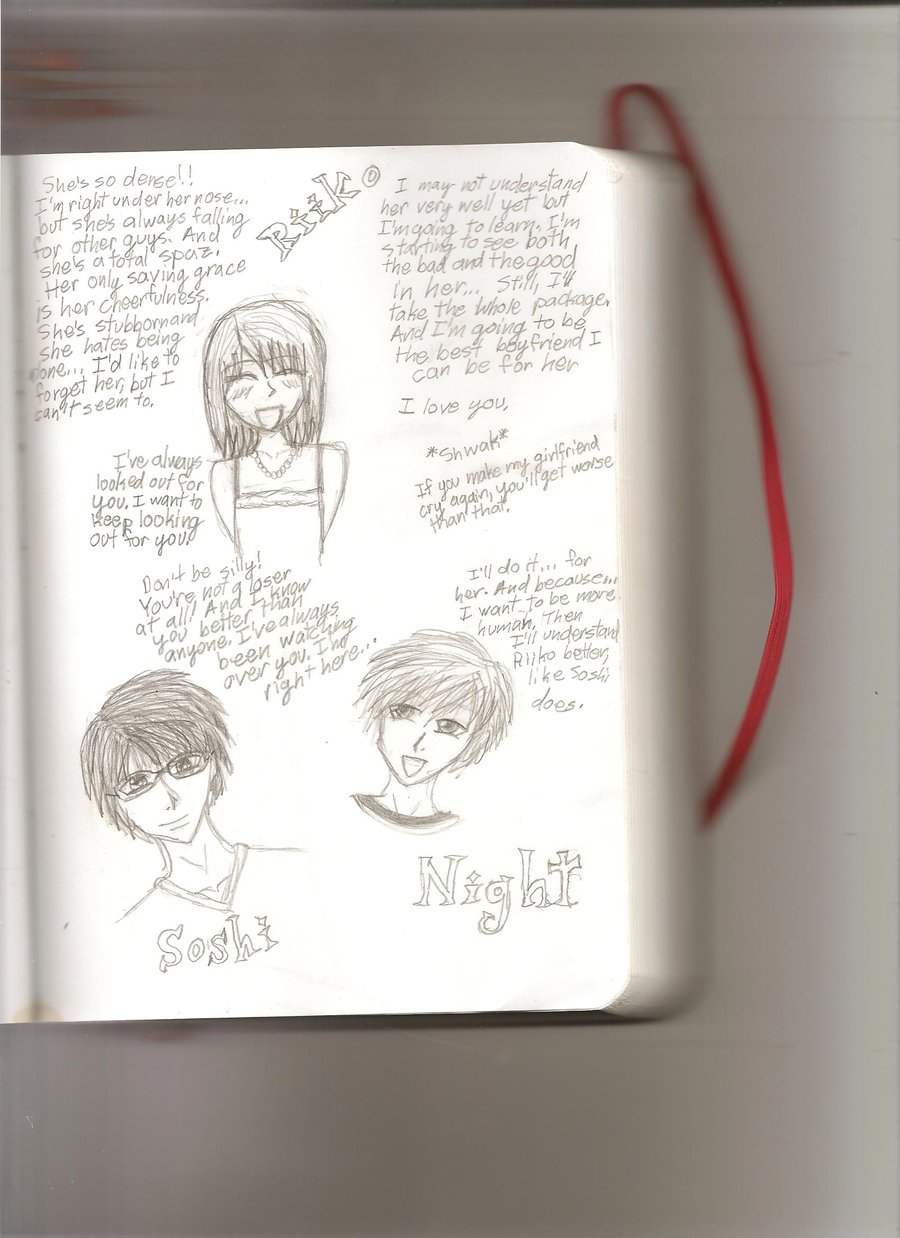 She's so dense!!
I'm right under her nose...
but she's always falling
for other guys. And
she's a total spaz.
Her only saving grace
is her cheerfulness.
She's stubborn and
she hates being
alone... I'd like to
forget her, but I
can't seem to.
Riiko
I may not understand
her very well yet but
I'm going to learn. I'm
starting to see both
the bad and the good
in her... Still, I'll
take the whole package.
And I'm going to be
the best boyfriend I
can be for her
I love you.
*Shwak*
If you make my girlfriend
cry again, you'll get worse
than that.
I've always
looked out for
you. I want to
keep looking
out for you.
Don't be silly!
You're not a loser
at all! And I know
you better than
anyone. I've always
been watching
over you. I'm
right here...
I'll do it... for
her. And because...
I want to be more
human. Then
I'll understand
Riiko better,
like Soshi
does.
Soshi
Night